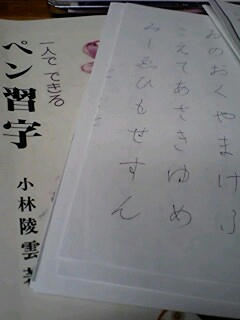 一人で できる
ペン習字
小林陵雲
おのおくやまけふ
こえてあさきゆめ
みしゑひもせすん